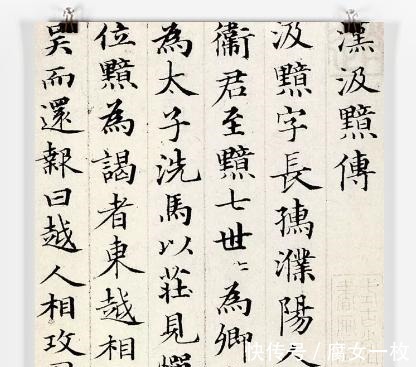 漢汲黯傳
汲黯字長孺濮陽人
衞君至黯七世〻為卿
為太子洗馬以莊見憚
位黯為謁者東越相
吳而還報曰越人相攻
快传号 / 腐女一枚